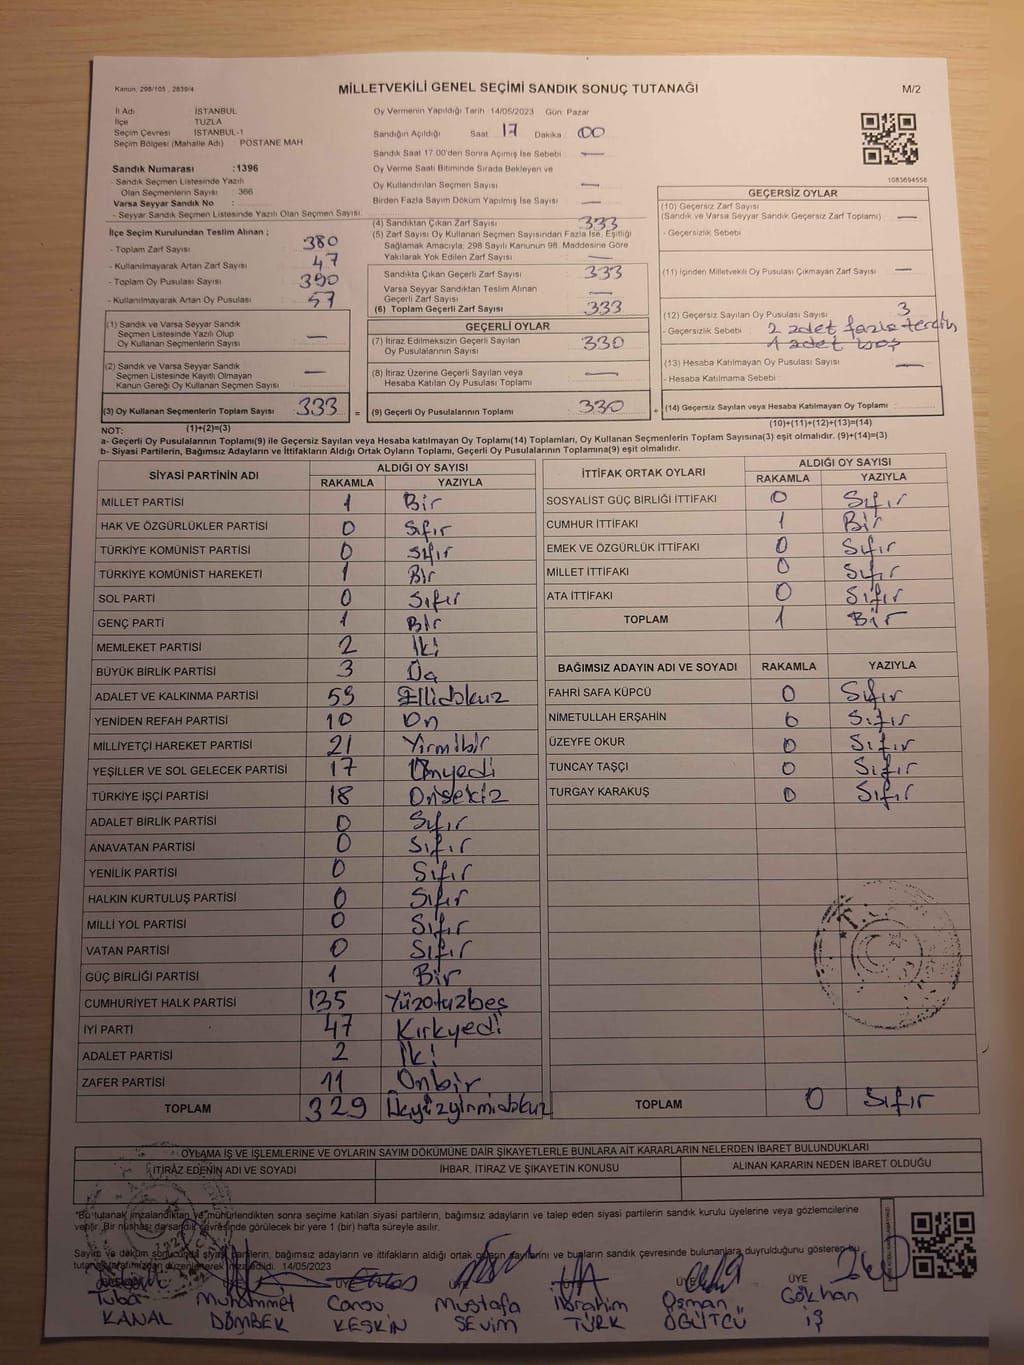 Kanun, 298/105 , 2839/4
MİLLETVEKİLİ GENEL SEÇİMİ SANDIK SONUÇ TUTANAĞI
M/2
İl Adı İSTANBUL
İlçe TUZLA
Seçim Çevresi İSTANBUL-1
Seçim Bölgesi (Mahalle Adı) POSTANE MAH.
Sandık Numarası :1396
- Sandık Seçmen Listesinde Yazılı
Olan Seçmenlerin Sayısı : 366
Varsa Seyyar Sandık No :
- Seyyar Sandık Seçmen Listesinde Yazılı Olan Seçmen Sayısı:
İlçe Seçim Kurulundan Teslim Alınan ;
- Toplam Zarf Sayısı 380
- Kullanılmayarak Artan Zarf Sayısı 47
- Toplam Oy Pusulası Sayısı 390
- Kullanılmayarak Artan Oy Pusulası 57
(1) Sandık ve Varsa Seyyar Sandık
Seçmen Listesinde Yazılı Olup
Oy Kullanan Seçmenlerin Sayısı —
(2) Sandık ve Varsa Seyyar Sandık
Seçmen Listesinde Kayıtlı Olmayan
Kanun Gereği Oy Kullanan Seçmen Sayısı —
(3) Oy Kullanan Seçmenlerin Toplam Sayısı 333 =
(1)+(2)=(3)
Oy Vermenin Yapıldığı Tarih 14/05/2023 Gün: Pazar
Sandığın Açıldığı Saat 17 Dakika 00
Sandık Saat 17.00'den Sonra Açılmış İse Sebebi —
Oy Verme Saati Bitiminde Sırada Bekleyen ve
Oy Kullandırılan Seçmen Sayısı —
Birden Fazla Sayım Döküm Yapılmış İse Sayısı —
(4) Sandıktan Çıkan Zarf Sayısı 333
(5) Zarf Sayısı Oy Kullanan Seçmen Sayısından Fazla İse, Eşitliği
Sağlamak Amacıyla, 298 Sayılı Kanunun 98. Maddesine Göre
Yakılarak Yok Edilen Zarf Sayısı —
Sandıkta Çıkan Geçerli Zarf Sayısı 333
Varsa Seyyar Sandıktan Teslim Alınan
Geçerli Zarf Sayısı —
(6) Toplam Geçerli Zarf Sayısı 333
GEÇERLİ OYLAR
(7) İtiraz Edilmeksizin Geçerli Sayılan
Oy Pusulalarının Sayısı 330
(8) İtiraz Üzerine Geçerli Sayılan veya
Hesaba Katılan Oy Pusulası Toplamı —
(9) Geçerli Oy Pusulalarının Toplamı 330 +
1083694558
GEÇERSİZ OYLAR
(10) Geçersiz Zarf Sayısı
(Sandık ve Varsa Seyyar Sandık Geçersiz Zarf Toplamı) —
- Geçersizlik Sebebi :
(11) İçinden Milletvekili Oy Pusulası Çıkmayan Zarf Sayısı —
(12) Geçersiz Sayılan Oy Pusulası Sayısı 3
- Geçersizlik Sebebi : 2 adet fazla tercih
1 adet boş
(13) Hesaba Katılmayan Oy Pusulası Sayısı —
- Hesaba Katılmama Sebebi :
(14) Geçersiz Sayılan veya Hesaba Katılmayan Oy Toplamı
(10)+(11)+(12)+(13)=(14)
NOT:
a- Geçerli Oy Pusulalarının Toplamı(9) ile Geçersiz Sayılan veya Hesaba katılmayan Oy Toplamı(14) Toplamları, Oy Kullanan Seçmenlerin Toplam Sayısına(3) eşit olmalıdır. (9)+(14)=(3)
b- Siyasi Partilerin, Bağımsız Adayların ve İttifakların Aldığı Ortak Oyların Toplamı, Geçerli Oy Pusulalarının Toplamına(9) eşit olmalıdır.
SİYASİ PARTİNİN ADI ALDIĞI OY SAYISI
RAKAMLA YAZIYLA
MİLLET PARTİSİ 1 Bir
HAK VE ÖZGÜRLÜKLER PARTİSİ 0 Sıfır
TÜRKİYE KOMÜNİST PARTİSİ 0 Sıfır
TÜRKİYE KOMÜNİST HAREKETİ 1 Bir
SOL PARTİ 0 Sıfır
GENÇ PARTİ 1 Bir
MEMLEKET PARTİSİ 2 İki
BÜYÜK BİRLİK PARTİSİ 3 Üç
ADALET VE KALKINMA PARTİSİ 59 Ellidokuz
YENİDEN REFAH PARTİSİ 10 On
MİLLİYETÇİ HAREKET PARTİSİ 21 Yirmibir
YEŞİLLER VE SOL GELECEK PARTİSİ 17 Onyedi
TÜRKİYE İŞÇİ PARTİSİ 18 Onsekiz
ADALET BİRLİK PARTİSİ 0 Sıfır
ANAVATAN PARTİSİ 0 Sıfır
YENİLİK PARTİSİ 0 Sıfır
HALKIN KURTULUŞ PARTİSİ 0 Sıfır
MİLLİ YOL PARTİSİ 0 Sıfır
VATAN PARTİSİ 0 Sıfır
GÜÇ BİRLİĞİ PARTİSİ 1 Bir
CUMHURİYET HALK PARTİSİ 135 Yüzotuzbeş
İYİ PARTİ 47 Kırkyedi
ADALET PARTİSİ 2 İki
ZAFER PARTİSİ 11 Onbir
TOPLAM 329 Üçyüzyirmidokuz
İTTİFAK ORTAK OYLARI ALDIĞI OY SAYISI
RAKAMLA YAZIYLA
SOSYALİST GÜÇ BİRLİĞİ İTTİFAKI 0 Sıfır
CUMHUR İTTİFAKI 1 Bir
EMEK VE ÖZGÜRLÜK İTTİFAKI 0 Sıfır
MİLLET İTTİFAKI 0 Sıfır
ATA İTTİFAKI 0 Sıfır
TOPLAM 1 Bir
BAĞIMSIZ ADAYIN ADI VE SOYADI RAKAMLA YAZIYLA
FAHRİ SAFA KÜPCÜ 0 Sıfır
NİMETULLAH ERŞAHİN 0 Sıfır
ÜZEYFE OKUR 0 Sıfır
TUNCAY TAŞÇI 0 Sıfır
TURGAY KARAKUŞ 0 Sıfır
TOPLAM 0 Sıfır
T.C.
OYLAMA İŞ VE İŞLEMLERİNE VE OYLARIN SAYIM DÖKÜMÜNE DAİR ŞİKAYETLERLE BUNLARA AİT KARARLARIN NELERDEN İBARET BULUNDUKLARI
İTİRAZ EDENİN ADI VE SOYADI İHBAR, İTİRAZ VE ŞİKAYETİN KONUSU ALINAN KARARIN NEDEN İBARET OLDUĞU
*Bu tutanak imzalandıktan ve mühürlendikten sonra seçime katılan siyasi partilerin, bağımsız adayların ve talep eden siyasi partilerin sandık kurulu üyelerine veya gözlemcilerine
verilir. Bir nüshası da sandık çevresinde görülecek bir yere 1 (bir) hafta süreyle asılır.
Sayım ve döküm sonucunda siyasi partilerin, bağımsız adayların ve ittifakların aldığı ortak oyların sayılarını ve bunların sandık çevresinde bulunanlara duyrulduğunu gösteren bu
tutanak tarafımızdan düzenlenerek imza edildi. 14/05/2023
ÜYE ÜYE ÜYE ÜYE ÜYE ÜYE
Tuba Muhammet Cansu Mustafa İbrahim Osman Gökhan
KANAL DÖMBEK KESKİN SEVİM TÜRK ÖĞÜTCÜ İŞ